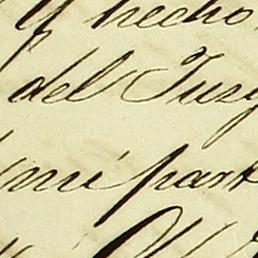 y hecho
del Juzg
mi part